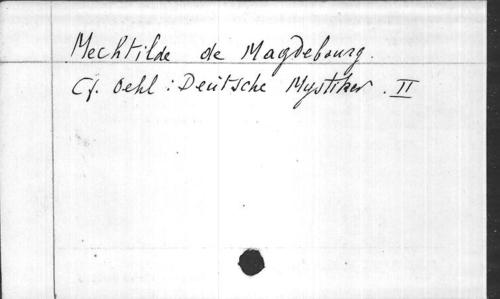 Mechtilde de Magdebourg.
Cf. Oehl : Deutsche Mystiker. II